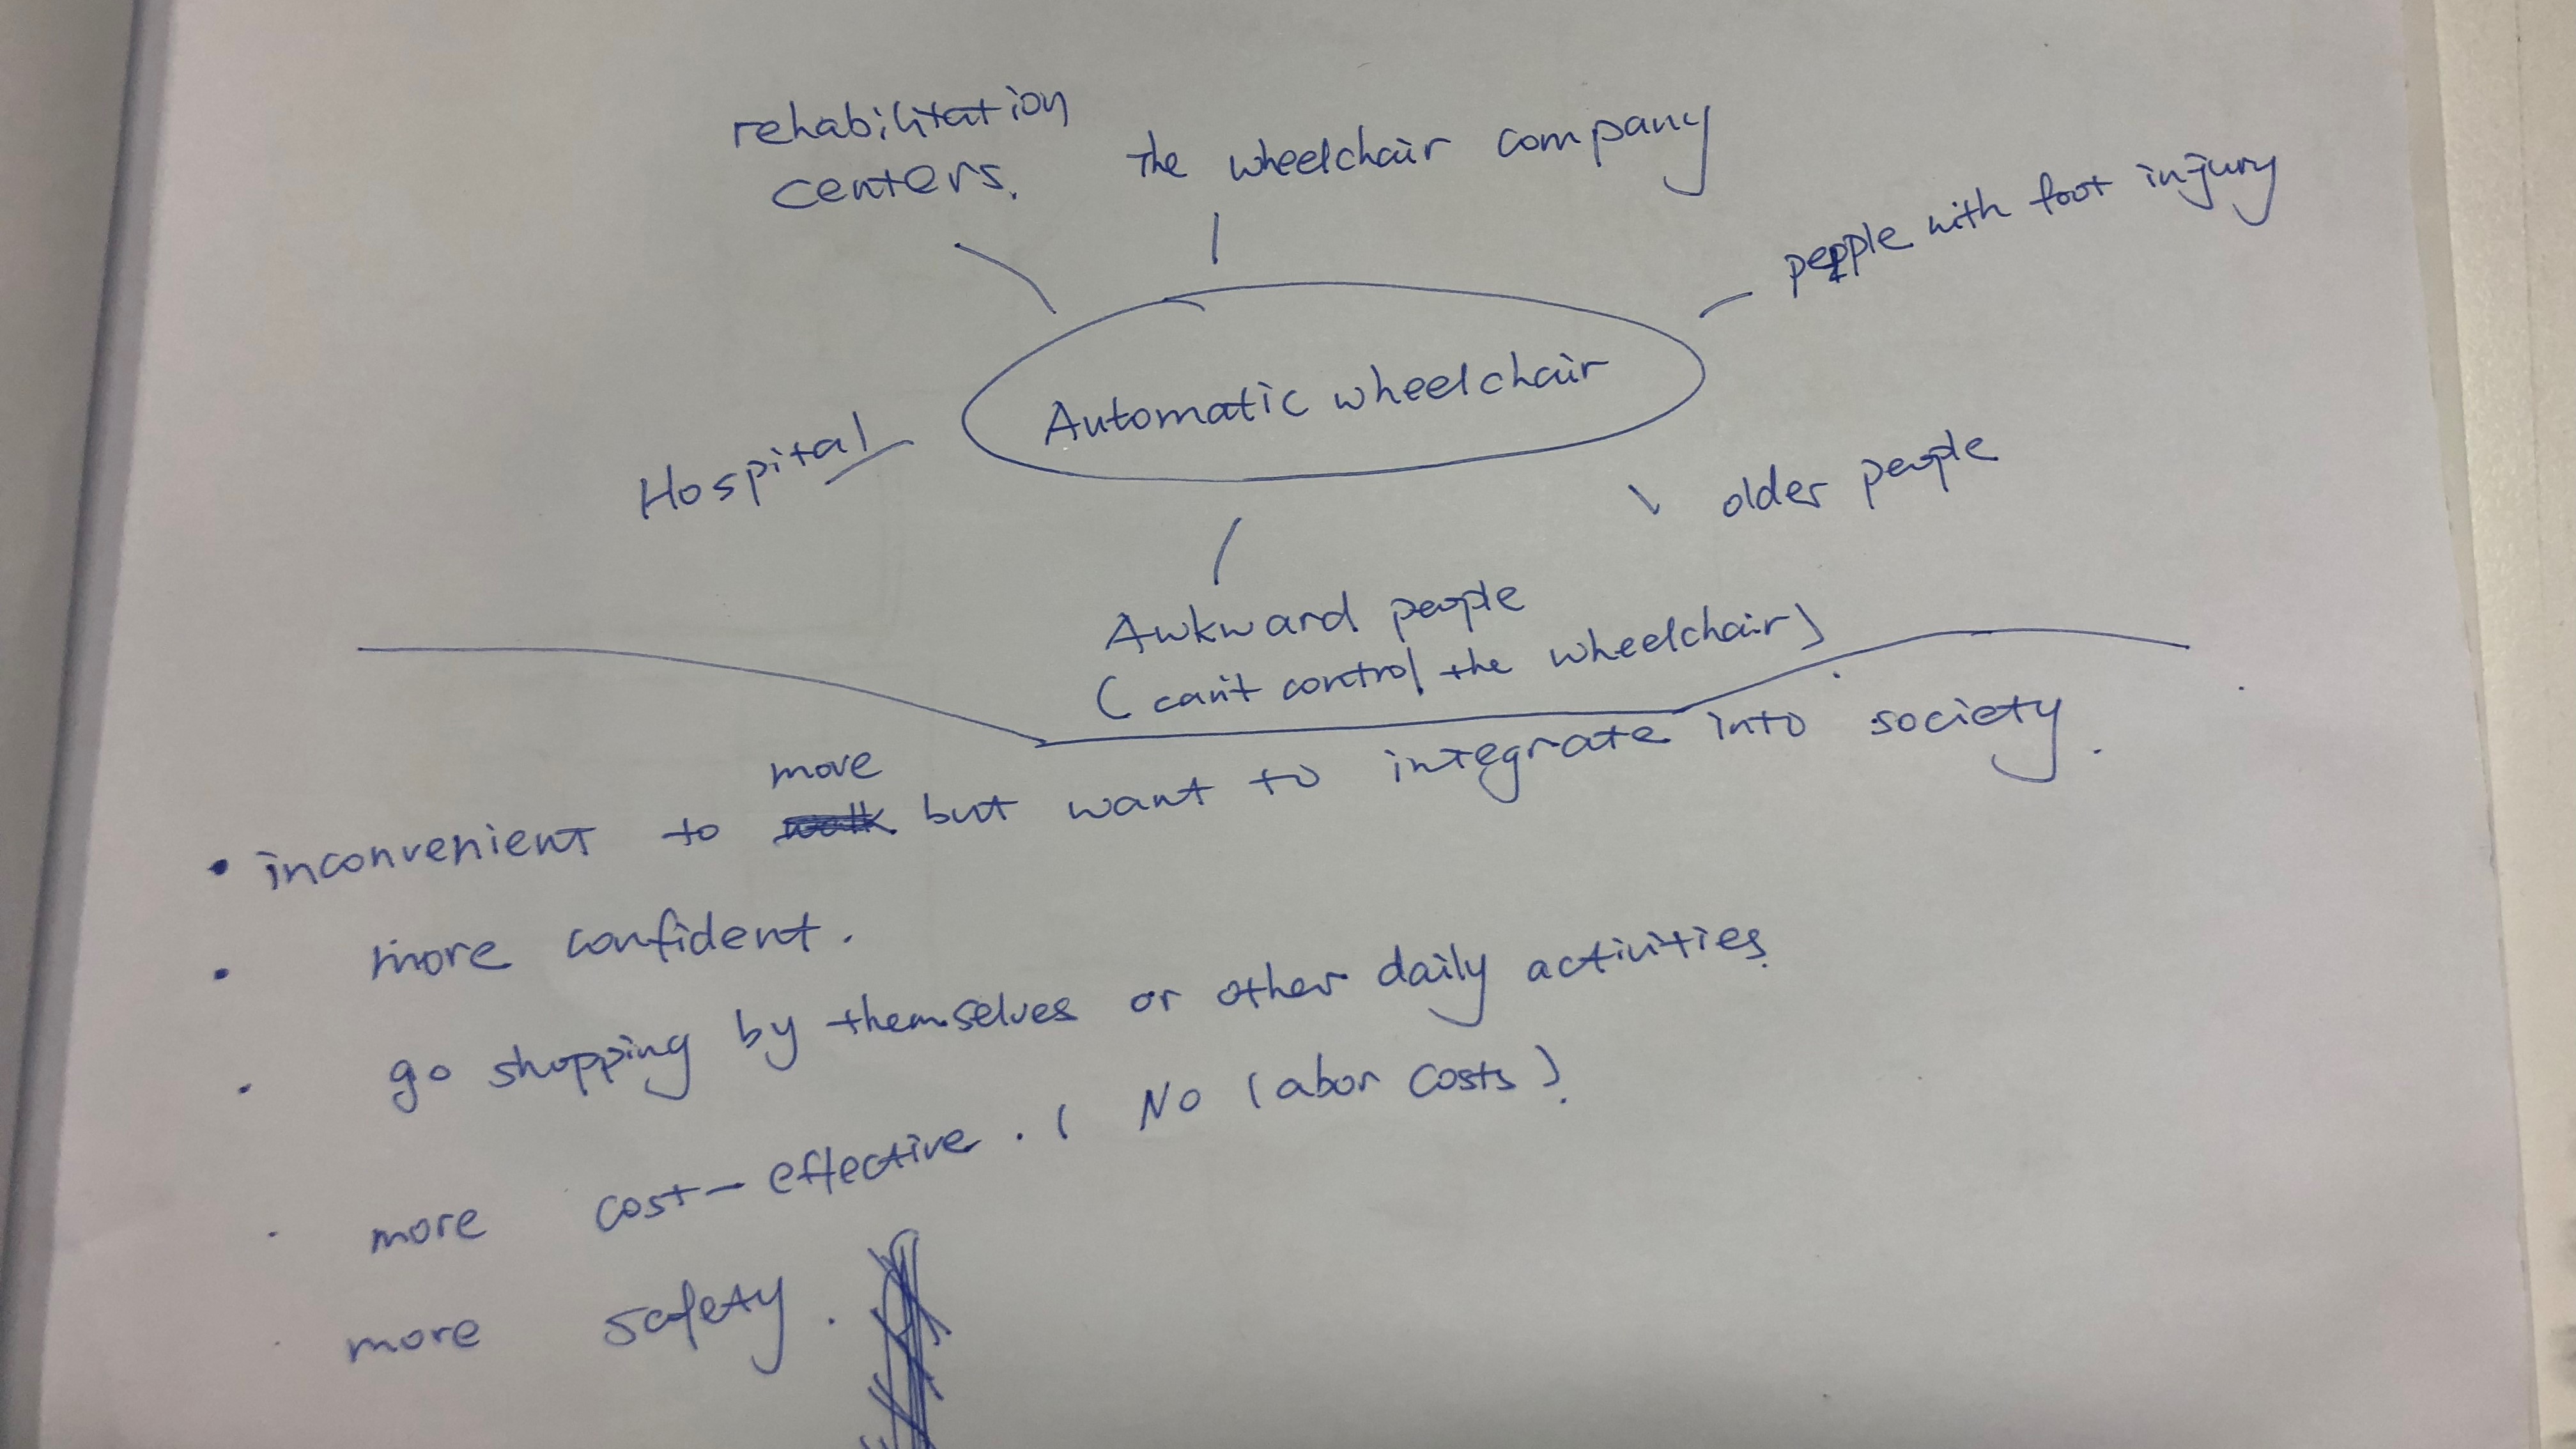 rehabilitation
centers.
The wheelchair company
people with foot injury
Automatic wheelchair
Hospital
older people
Awkward people
( can't control the wheelchair)
move
• inconvenient to walk but want to integrate into society.
• more confident.
• go shopping by themselves or other daily activities.
• more cost-effective. ( No labor costs).
• more safety.